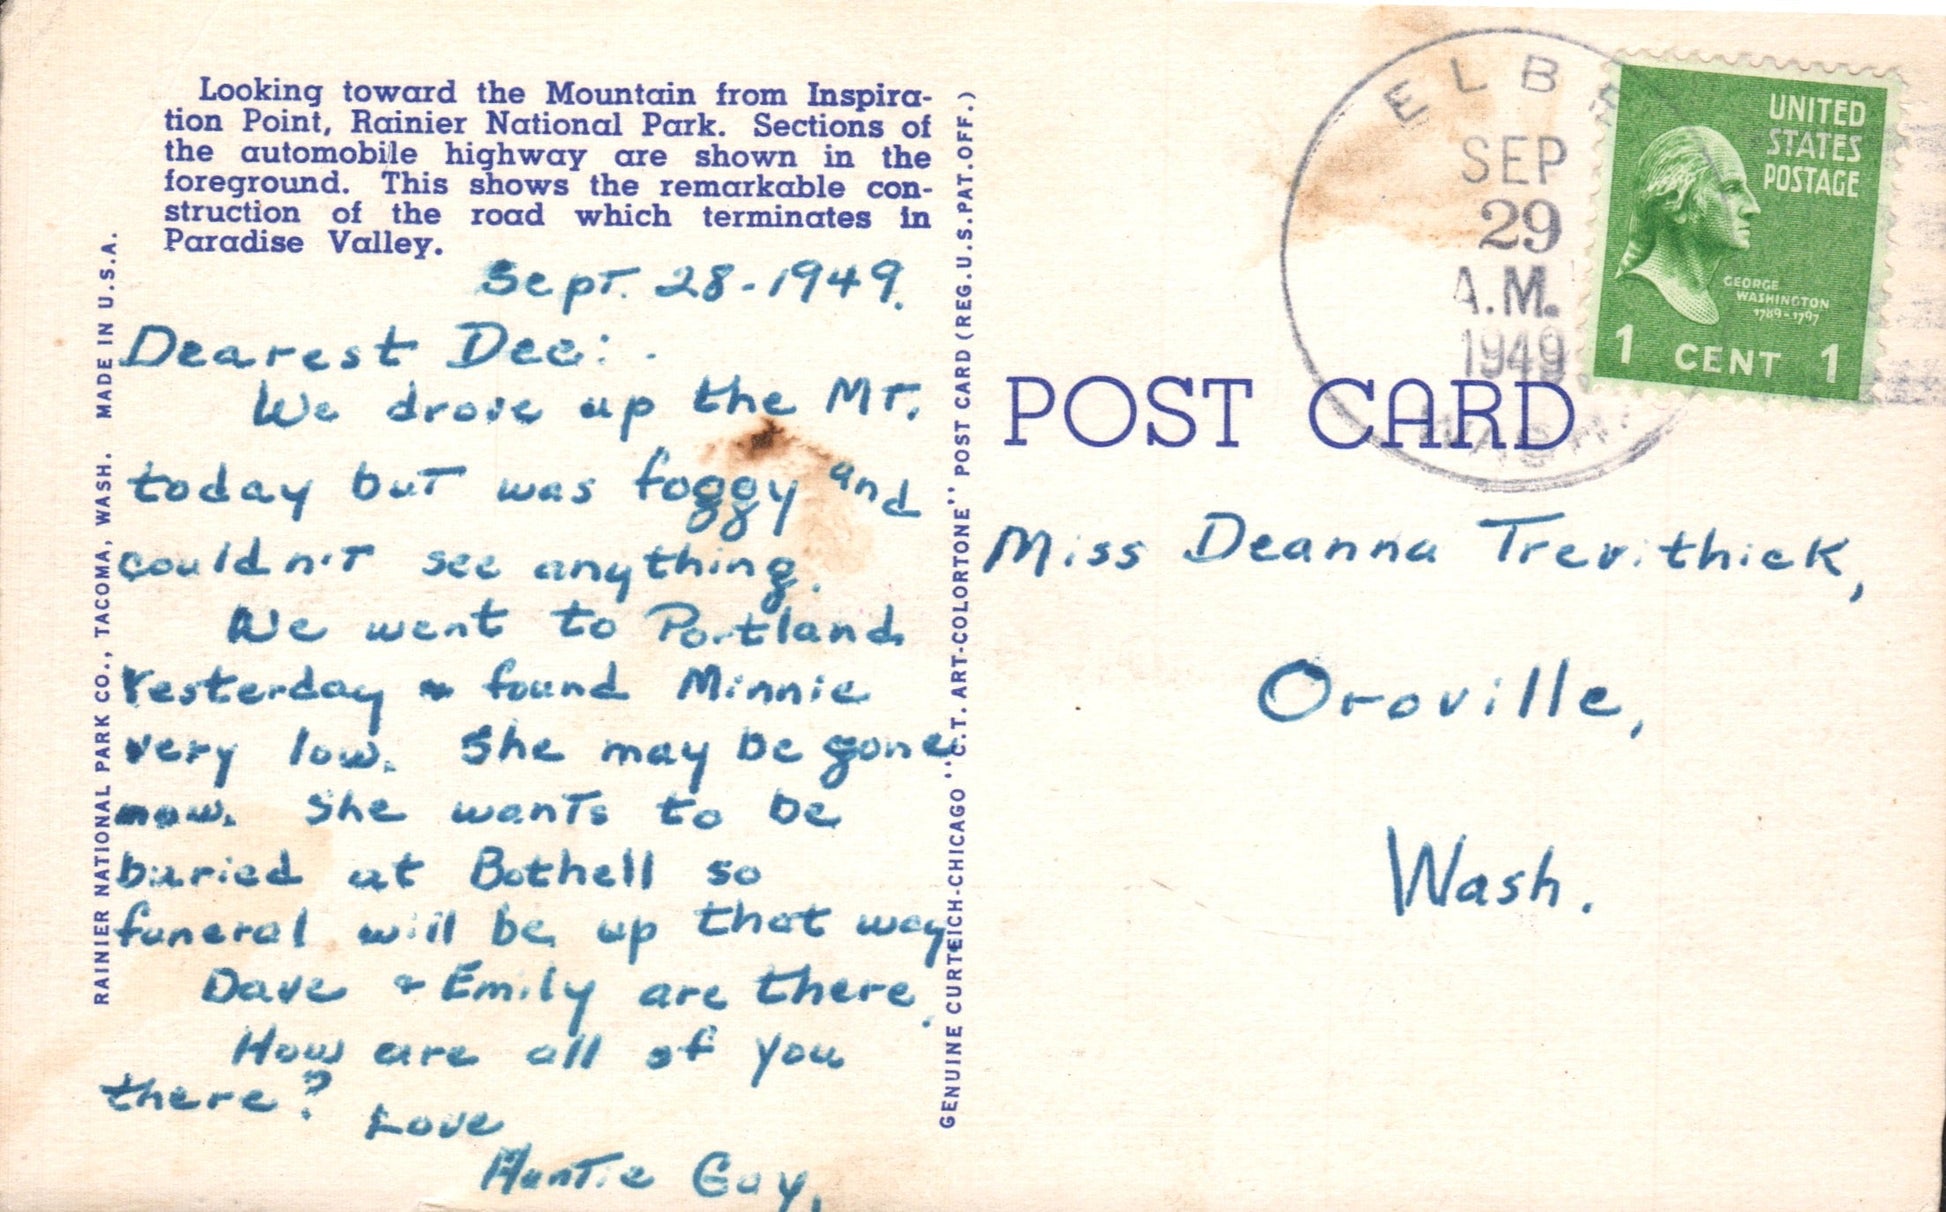 Looking toward the Mountain from Inspira-
tion Point, Rainier National Park. Sections of
the automobile highway are shown in the
foreground. This shows the remarkable con-
struction of the road which terminates in
Paradise Valley.
Sept. 28-1949.
Dearest Dee:
We drove up the Mt.
today but was foggy and
couldn't see anything.
We went to Portland
Yesterday & found Minnie
very low. She may be gone
now. She wants to be
buried at Bothell so
funeral will be up that way.
Dave & Emily are there.
How are all of you
there?
Love
Auntie Guy.
RAINIER NATIONAL PARK CO., TACOMA, WASH. MADE IN U.S.A.
GENUINE CURTEICH-CHICAGO "C.T. ART-COLORTONE" POST CARD (REG. U.S. PAT. OFF.)
POST CARD
SEP
29
A.M.
1949
WASH.
UNITED
STATES
POSTAGE
GEORGE
WASHINGTON
1789-1797
1 CENT 1
Miss Deanna Trevithick,
Oroville,
Wash.